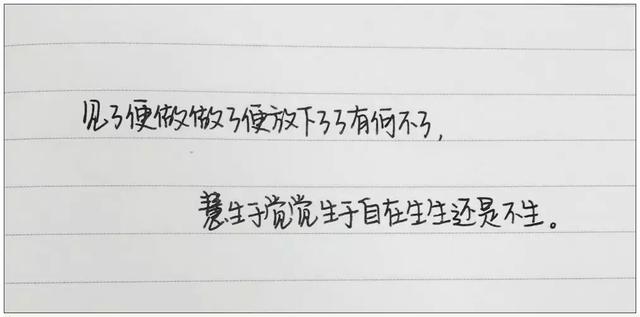 见了便做做了便放下了了有何不了,
慧生于觉觉生于自在生生还是不生。